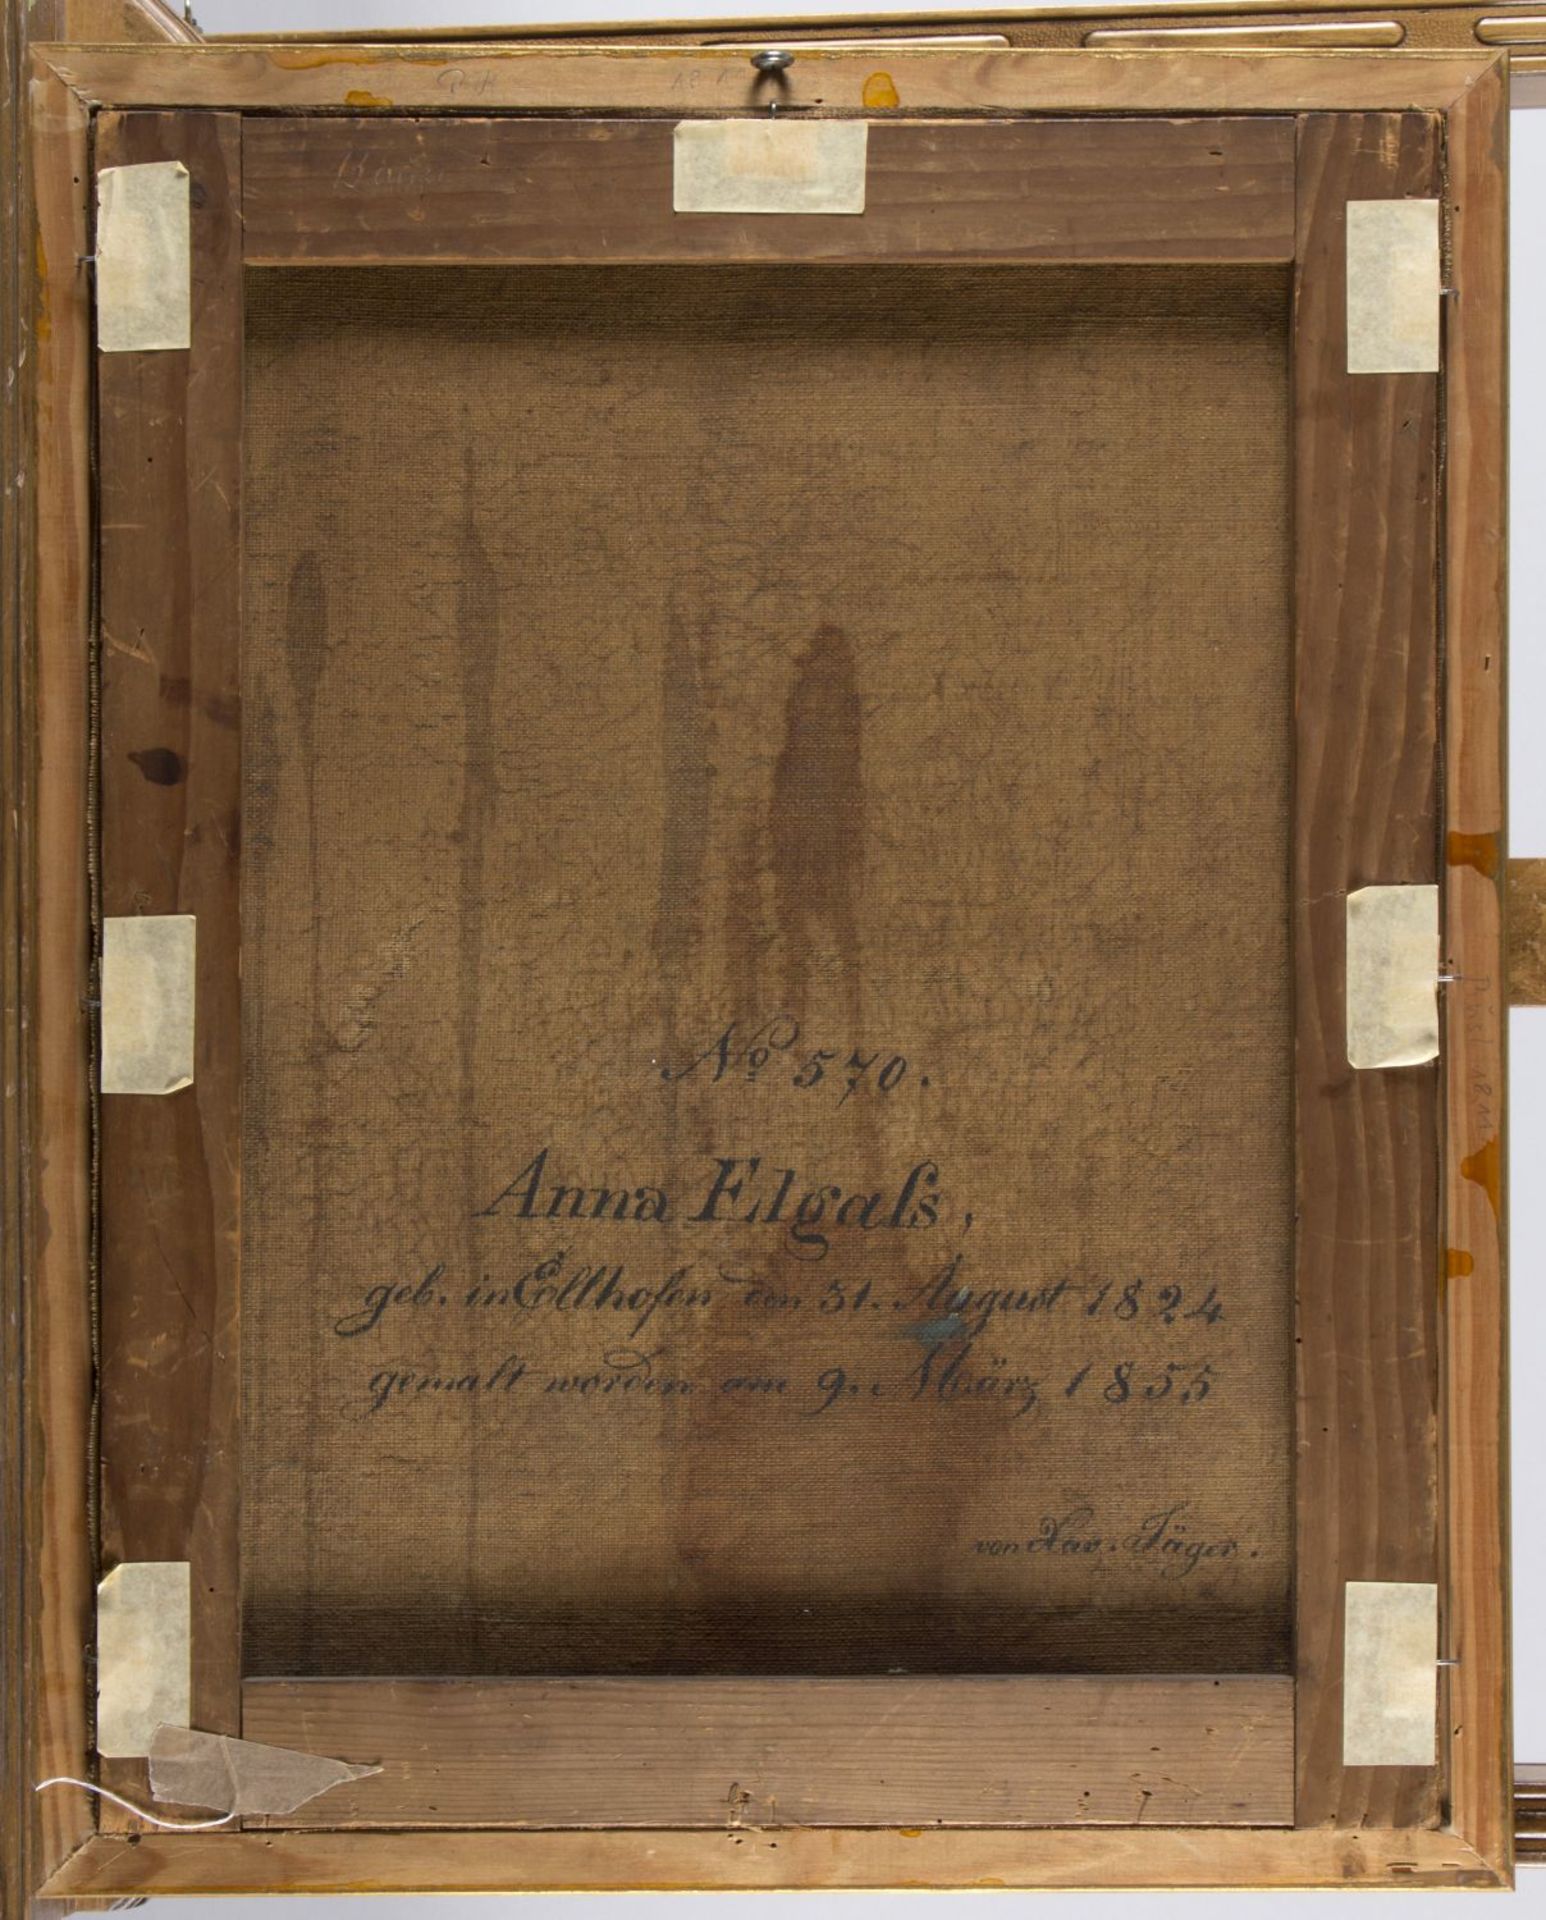 No 570.
Anna Elgaſs,
geb. in Ellhofen den 31. August 1824
gemalt worden am 9. März 1855
von Xav. Jäger.